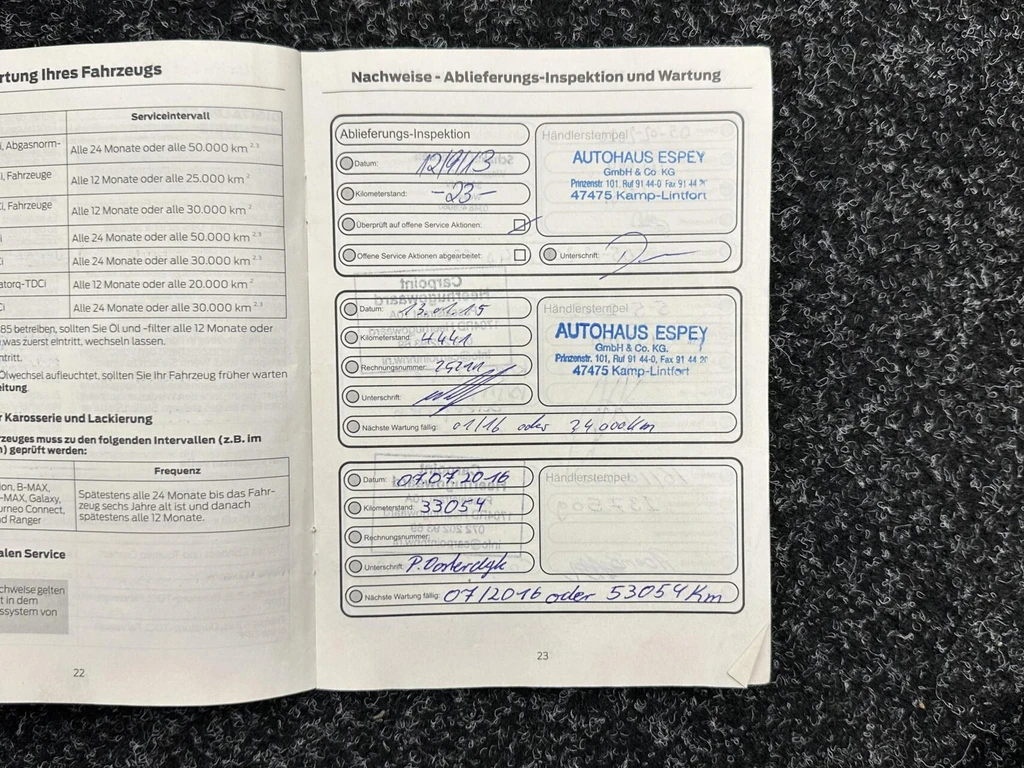 rtung Ihres Fahrzeugs
Serviceintervall
i, Abgasnorm-
Alle 24 Monate oder alle 50.000 km 2,3
l, Fahrzeuge
Alle 12 Monate oder alle 25.000 km 2
i, Fahrzeuge
Alle 12 Monate oder alle 30.000 km 2
i
Alle 24 Monate oder alle 50.000 km 2,3
i
Alle 24 Monate oder alle 30.000 km 2,3
atorq-TDCi
Alle 12 Monate oder alle 20.000 km 2
i
Alle 24 Monate oder alle 30.000 km 2,3
85 betreiben, sollten Sie Öl und -filter alle 12 Monate oder
, was zuerst eintritt, wechseln lassen.
ntritt.
Ölwechsel aufleuchtet, sollten Sie Ihr Fahrzeug früher warten
eitung.
r Karosserie und Lackierung
rzeuges muss zu den folgenden Intervallen (z.B. im
n) geprüft werden:
Frequenz
ion, B-MAX,
-MAX, Galaxy,
urneo Connect,
d Ranger
Spätestens alle 24 Monate bis das Fahr-
zeug sechs Jahre alt ist und danach
spätestens alle 12 Monate.
alen Service
chweise gelten
t in dem
ssystem von
22
Nachweise - Ablieferungs-Inspektion und Wartung
Ablieferungs-Inspektion
Datum: 12/9/13
Kilometerstand: -23-
Überprüft auf offene Service Aktionen:
Offene Service Aktionen abgearbeitet:
Händlerstempel
AUTOHAUS ESPEY
GmbH & Co. KG
Prinzenstr. 101, Ruf 91 44-0 Fax 91 44
47475 Kamp-Lintfort
Unterschrift:
Datum: 13.01.15
Kilometerstand: 4441
Rechnungsnummer:
Unterschrift:
Händlerstempel
AUTOHAUS ESPEY
GmbH & Co. KG.
Prinzenstr. 101, Ruf 91 44-0, Fax 91 44
47475 Kamp-Lintfort
Nächste Wartung fällig: 01/16 oder 24.000Km
Datum: 07.07.2016
Kilometerstand: 33054
Rechnungsnummer:
Unterschrift: P. Oosterdyk
Händlerstempel
Nächste Wartung fällig: 07/2016 oder 53054 Km
23